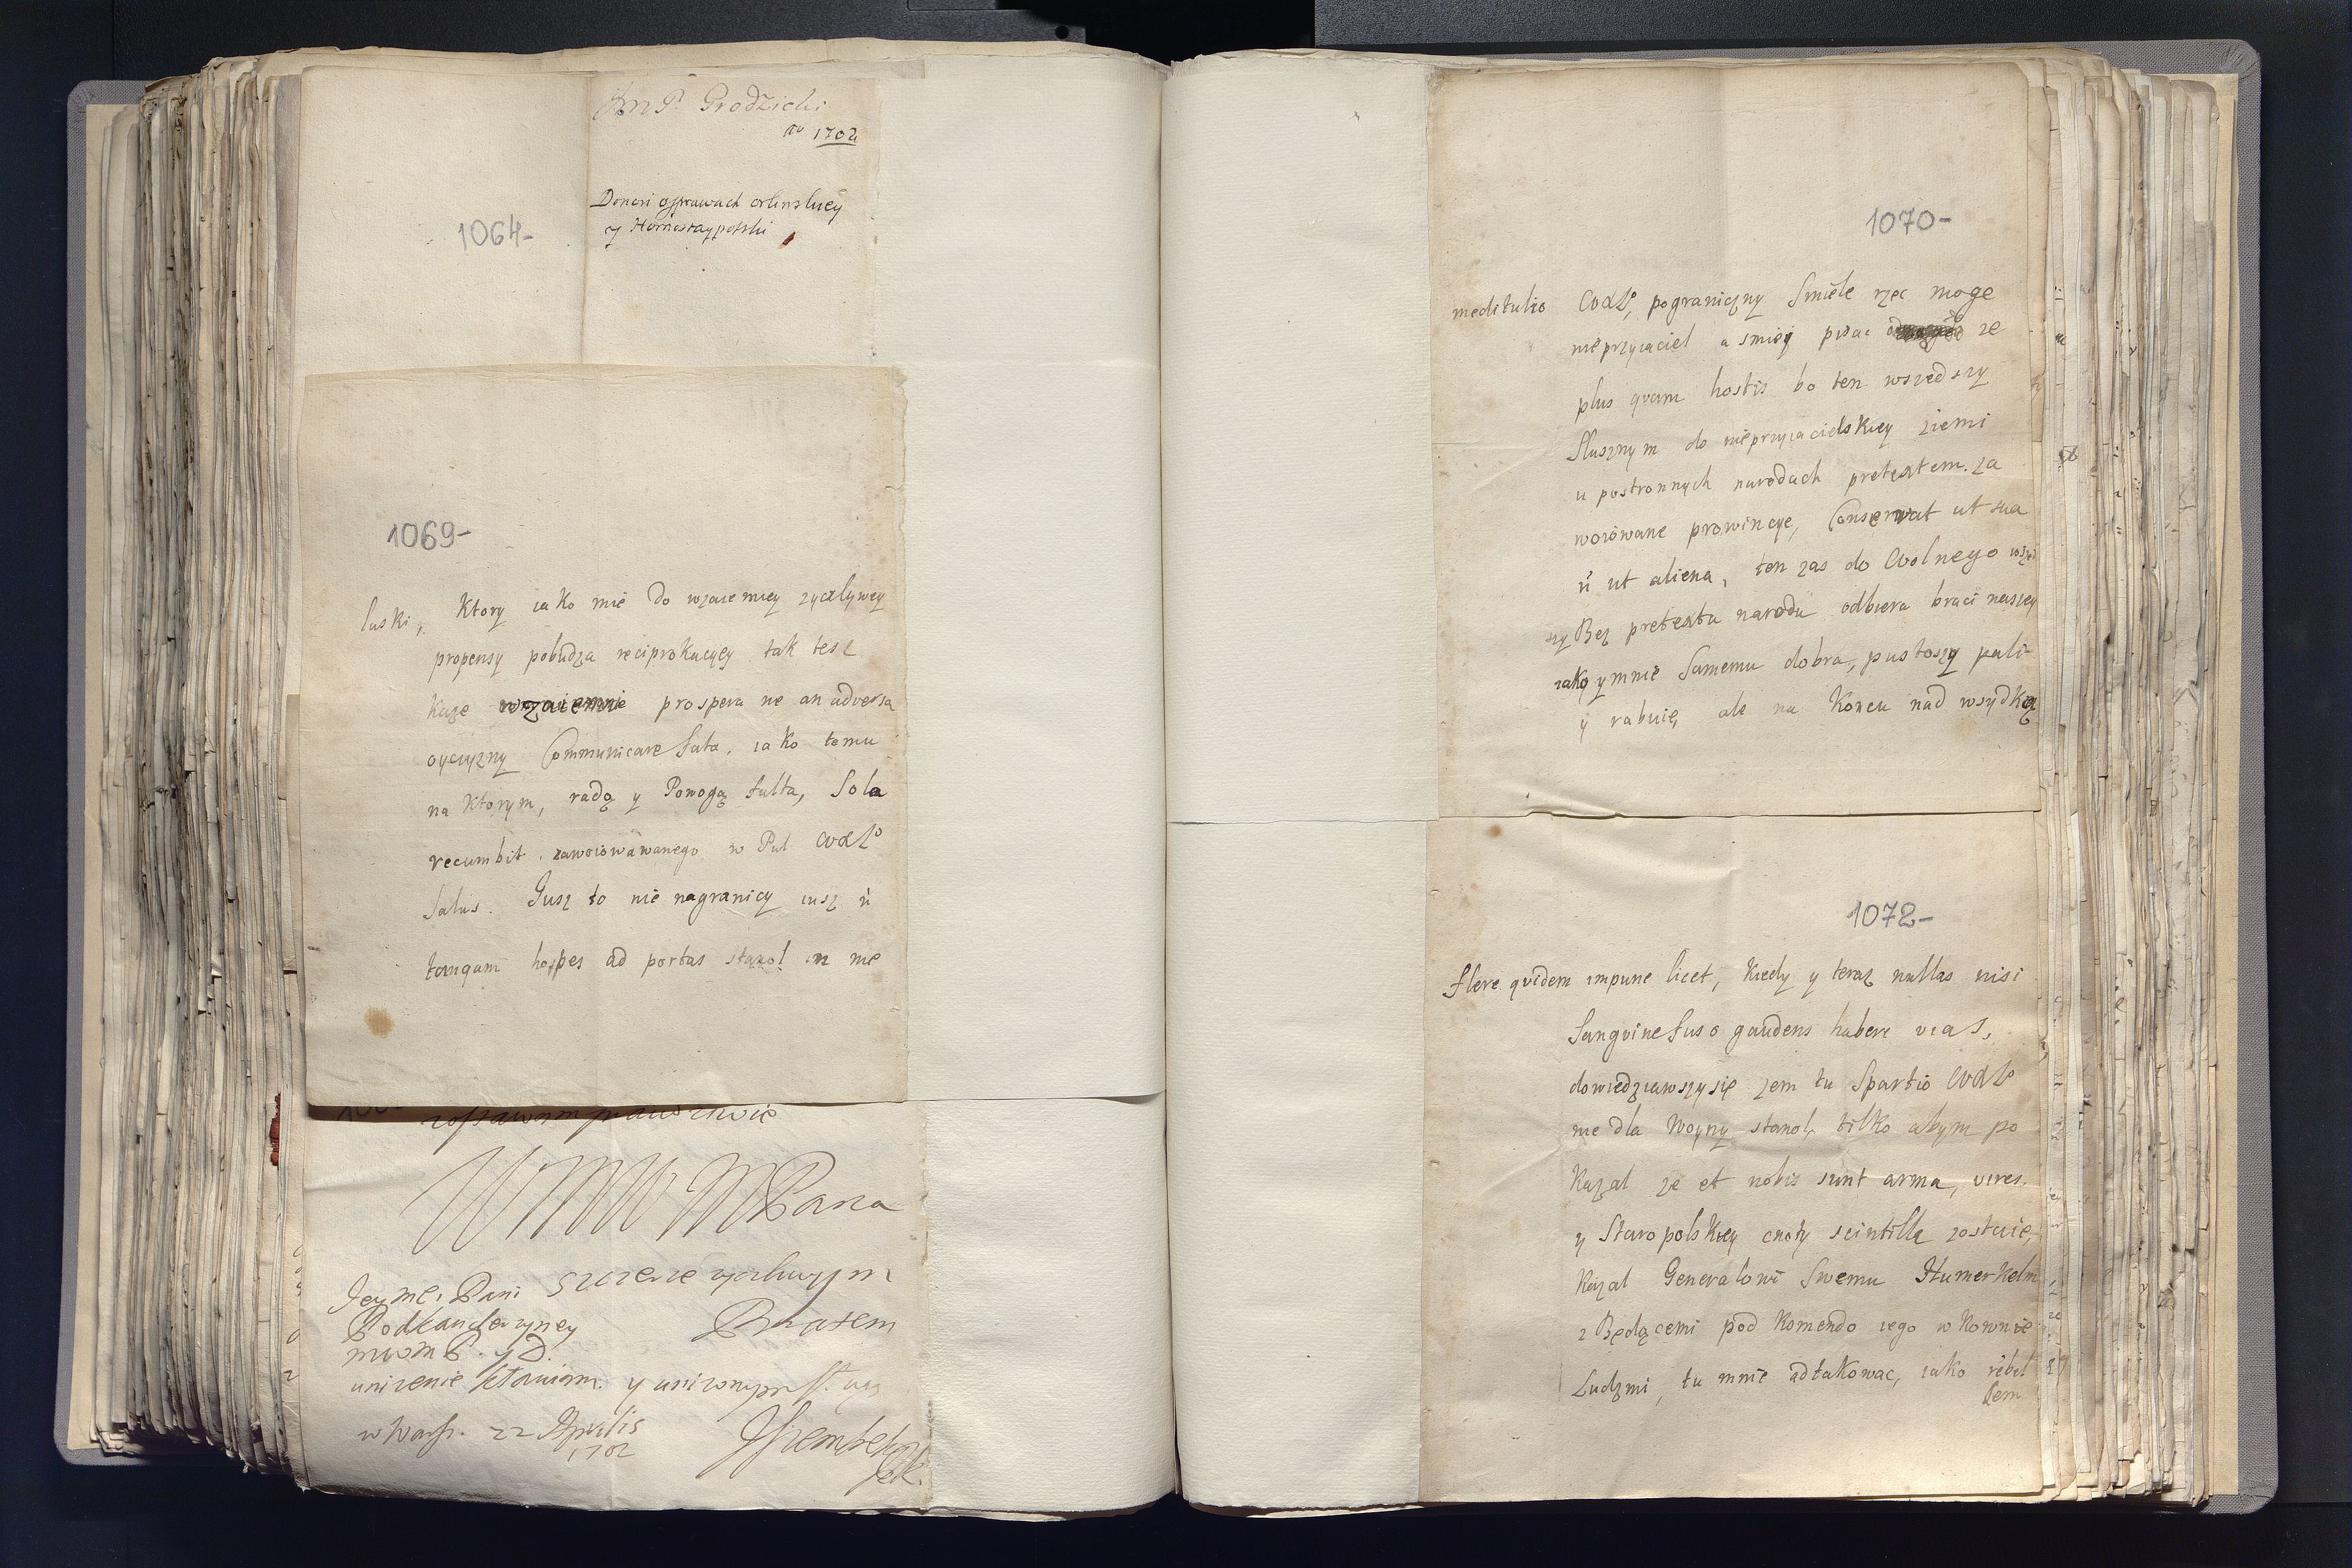 JmP. Grodzicki
Ao 1702
Donosi o sprawach orlinskiey
y Hornostaypolski
1064-
1069-
laski, Ktory iako mie do wzaiemney zyczlywey
propensy pobudza reciprokacyey tak tesz
kaze wzaiemnie prospera ne an adversa
oyczyzny Communicare fata, iako temu
na Ktorym, radą y Pomogą fulta, Sola
recumbit zawoiowawanego w Pul WXL
Salus. Jusz to nie nagranicy iusz ù
tanquam hospes ad portas stanol in me
zostawam prawdziwie
WMM MPana
szczerze zyczliwym
Jeyme. Pani
Podkanclerzyney Bratem
mwmP. y D.
unizenie kłaniam. y unizonym sługą
w Warsz. 22 Aprilis
1702
JSzembek
1070-
meditulio WXL, pograniczny Smiele rzec moge
nieprzyiaciel a smięy pisac ze
plus quam hostis bo ten wszedszy
Slusznym do nieprzyiacielskiey ziemi
u postronnych narodach pretextem. za
woiowane prowincye, Conservat ut sua
ń ut aliena, ten zas do Wolnego wszed
szy Bez pretextu narodu odbiera braci naszey
iako y mnie Samemu dobra, pustoszy pali
y rabuie, ale na Koncu nad wsydko
1072-
flere quidem impune licet, Kiedy y teraz nullas nisi
Sangvine fuso gaudens habere vias,
dowiedziawszy się zem tu Spartio WXL
nie dla Woyny stanol, tilko abym po
Kazal ze et nobis sunt arma, vires.
y Staropolskiey cnoty scintilla zostaie,
Kazal Generalowi Swemu Humerhelm
z Będącemi pod Komendo iego w Kownie
Ludzmi, tu mnie adtakowac, iako rebel
lem